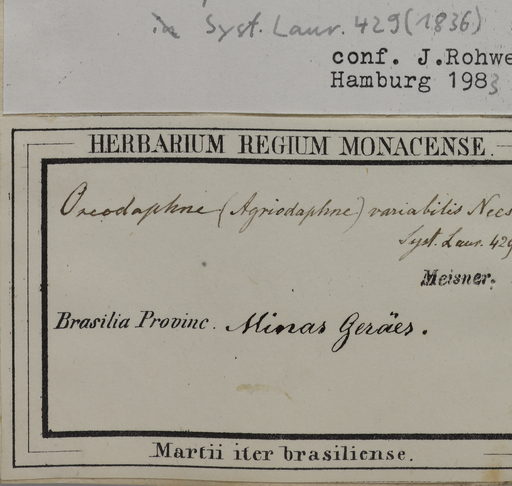 in Syst. Laur. 429 (1836)
conf. J.Rohwe
Hamburg 1983
HERBARIUM REGIUM MONACENSE.
Oreodaphne (Agriodaphne) variabilis Nees
Syst. Laur. 429
Meisner.
Brasilia Provinc. Minas Geräes.
Martii iter brasiliense.